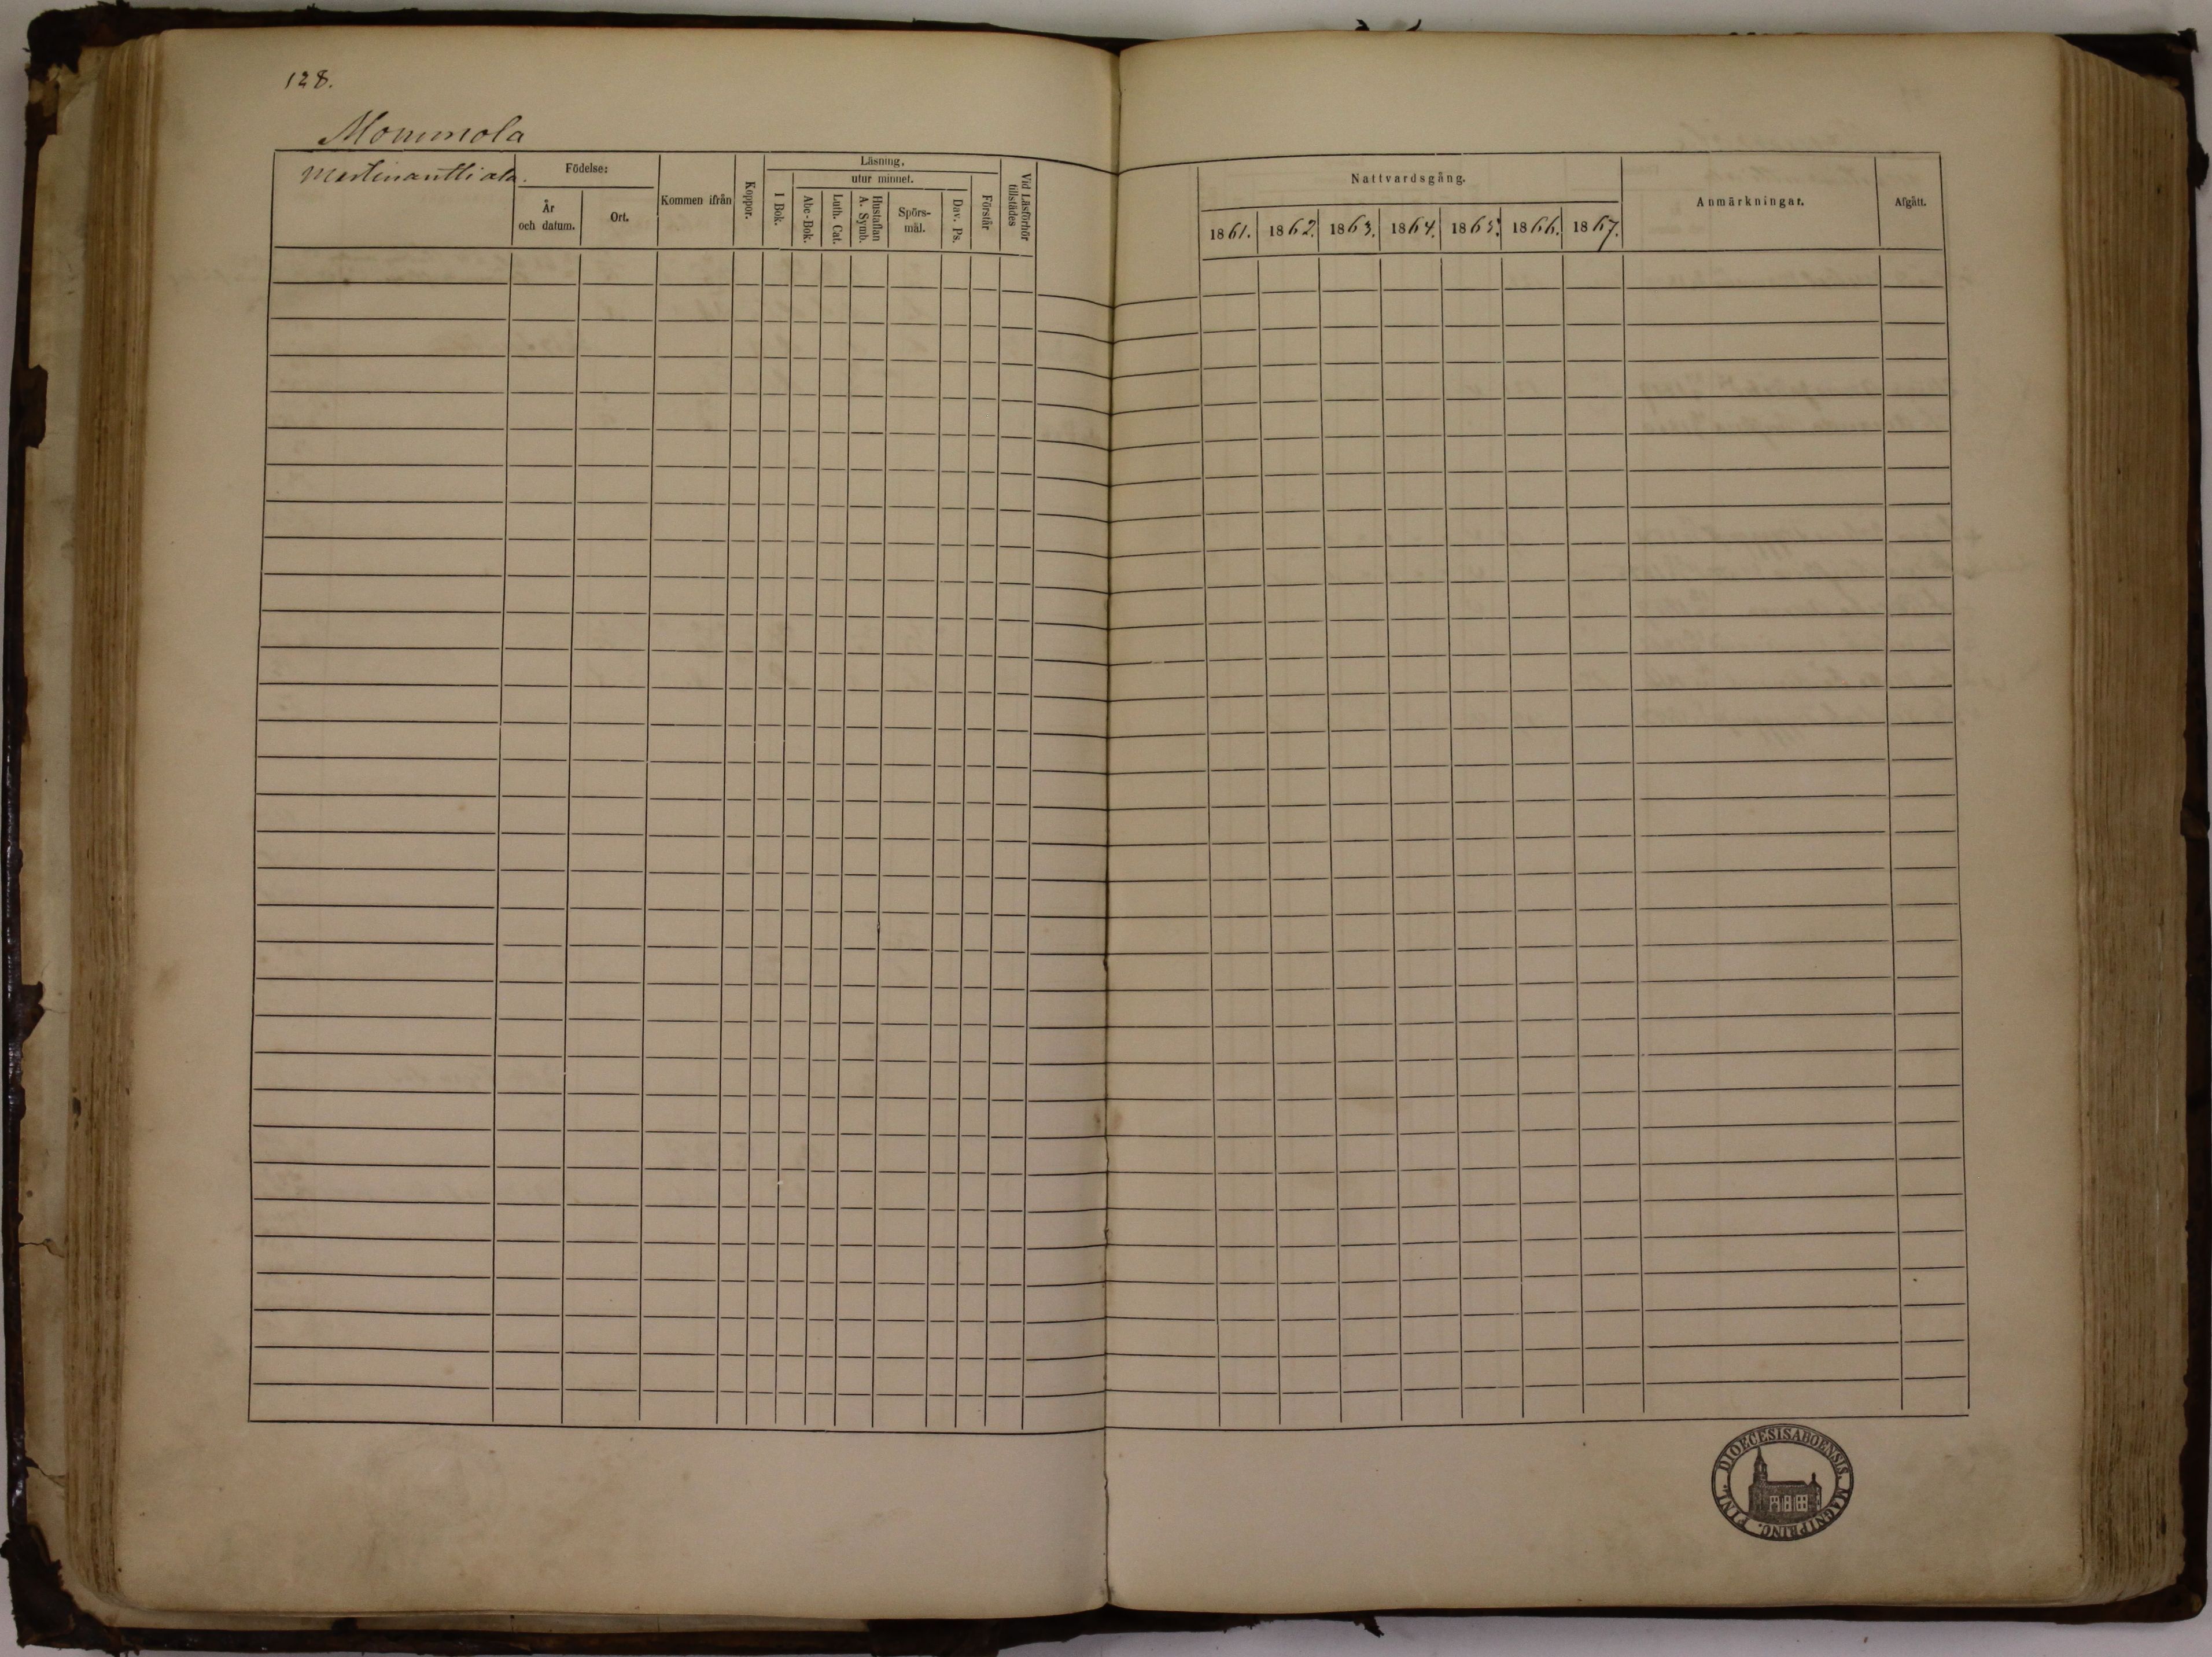 128.
Mommola
Martinanttiala.
Födelse:
År
och datum.
Ort.
Kommen ifrån
Koppor.
Läsning,
utur minnet.
I Bok.
Abc-Bok.
Luth. Cat.
Hustaflan
A. Symb.
Spörs-
mål.
Dav. Ps.
Förstår
Vid Läsförhör
tillstädes
Nattvardsgång.
1861. 1862. 1863. 1864. 1865. 1866. 1867.
Anmärkningar.
Afgått.
DIOECESIS ABOENSIS. MAGNI PRINC. FINL.